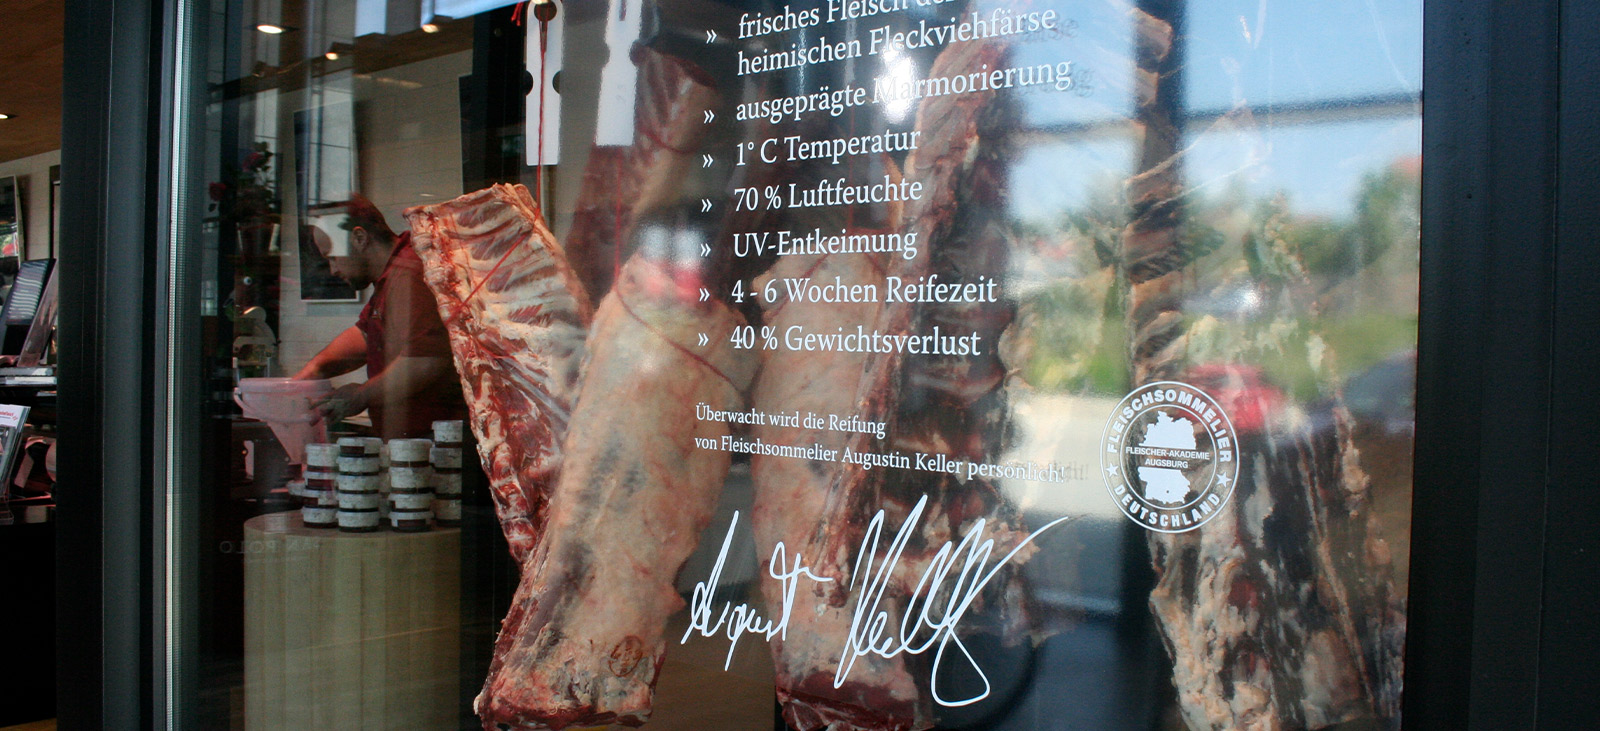 » frisches Fleisch der
heimischen Fleckviehfärse
» ausgeprägte Marmorierung
» 1° C Temperatur
» 70 % Luftfeuchte
» UV-Entkeimung
» 4 - 6 Wochen Reifezeit
» 40 % Gewichtsverlust
Überwacht wird die Reifung
von Fleischsommelier Augustin Keller persönlich!
August Keller
FLEISCHSOMMELIER
FLEISCHER-AKADEMIE
AUGSBURG
★ DEUTSCHLAND ★